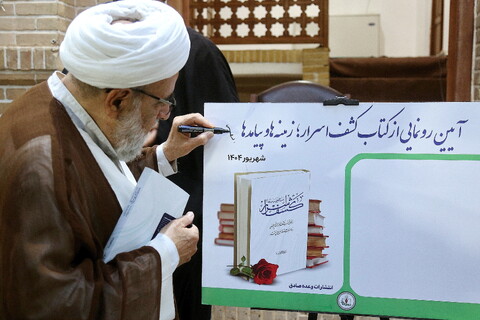 آیین رونمایی از کتاب کشف اسرار؛ زمینه ها و پیامدها
شهریور ۱۴۰۴
کشف اسرار
انتشارات وعده صادق